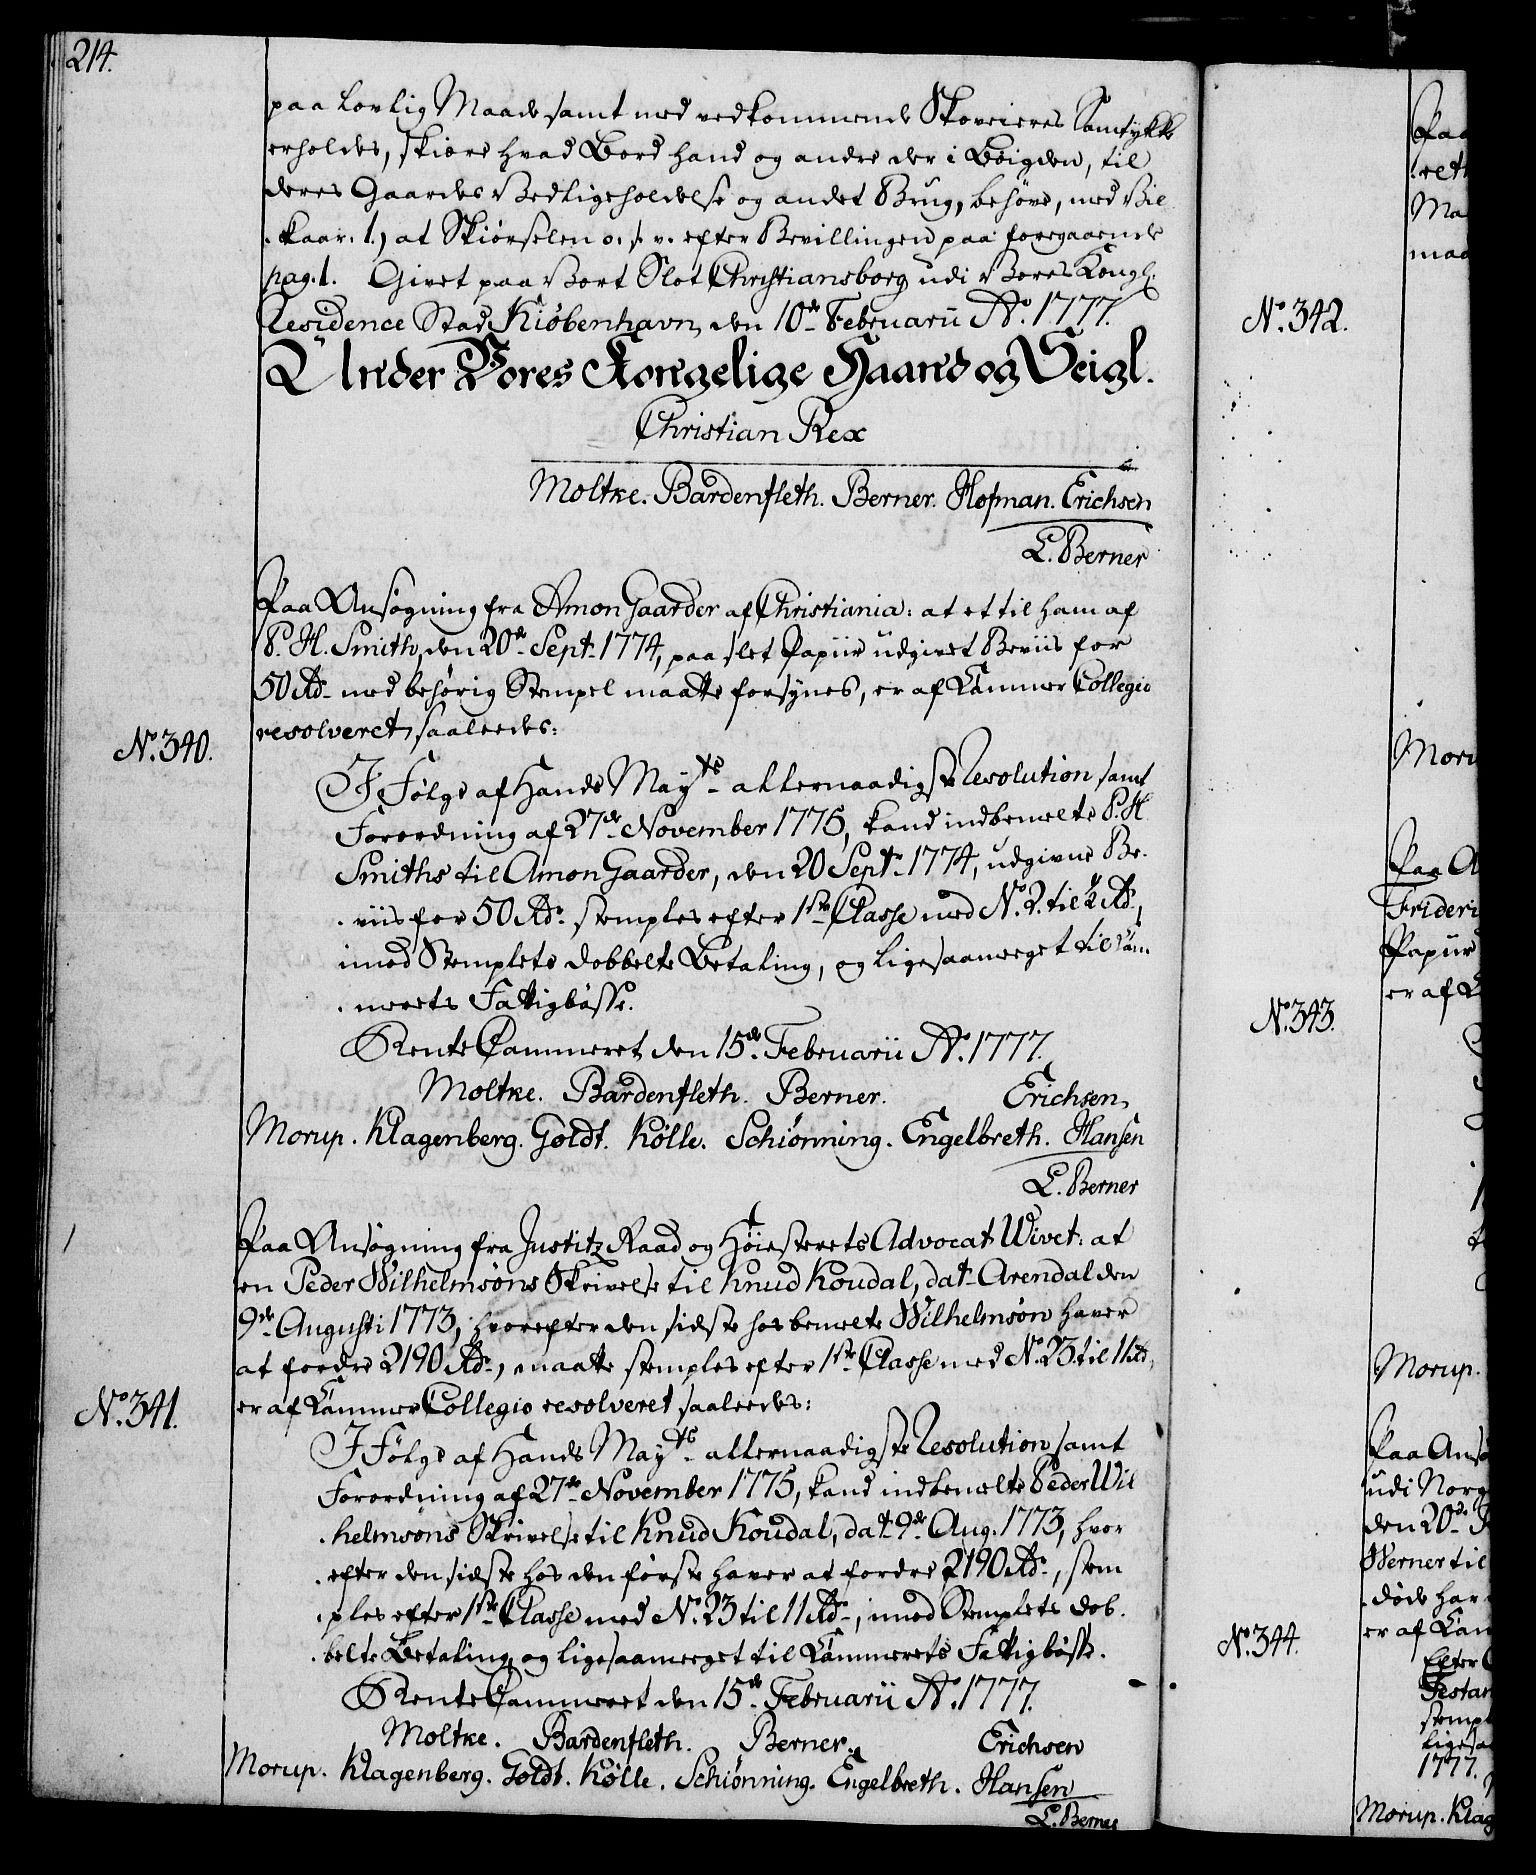 214.
paa lovlig Maade samt med vedkommende Skoveieres Samtykke
erholdes, skiære hvad Bord hand og andre der i Bøigden, til
deres Gaardes Vedligeholdelse og andet Brug, behøve, med Vil
-kaar: 1., at Skiørselen o. s. v. efter Bevillingen paa foregaaende
pag. 1. Givet paa Vort Slot Christiansborg udi Vores Kongl.
Residence Stad Kiøbenhavn, den 10de Februarii Ao. 1777.
Under Vores Kongelige Haand og Seigl.
Christian Rex
Moltke. Bardenfleth. Berner. Hofman. Erichsen
L. Berner
Paa Ansøgning fra Amon Gaarder af Christiania: at et til ham af
P. H. Smith, den 20de Sept. 1774, paa slet Papiir udgivet Beviis for
50 Rdr. med behørig Stempel maatte forsynes, er af Kammer Collegio
No. 340.
resolveret saaledes:
I Følge af Hands Mayts. allernaadigste Resolution samt
Forordning af 27de November 1775, kand indbemelte P. H.
Smiths til Amon Gaarder, den 20 Sept. 1774, udgivne Be-
-viis for 50 Rdr. stemples efter 1ste Classe med No. 2. til ½ Rdr.,
imod Stemplets dobbelte Betaling, og ligesaameget til Kam
-merets Fattigbøsse.
Rente Cammeret den 15de Februarii Ao. 1777.
Moltke. Bardenfleth. Berner. Erichsen,
Morup. Klagenberg. Goldt. Kølle. Schiønning. Engelbreth. Hansen
L. Berner
Paa Ansøgning fra Justitz Raad og Høiesterets Advocat Wivet: at
en Peder Wilhelmsøns Skrivelse til Knud Koudal, dat. Arendal den
9de Augusti 1773, hvorefter den sidste hos bemelte Wilhelmsøn haver
at fordre 2190 Rdr., maatte stemples efter 1ste Classe med No. 23. til 11 Rd,
No. 341.
er af Kammer Collegio resolveret saaledes:
I Følge af Hands Mayts. allernaadigste Resolution samt
Forordning af 27de November 1775, kand indbemelte Peder Wil
-helmsøns Skrivelse til Knud Koudal, dat. 9de Aug. 1773, hvor
-efter den sidste hos den første haver at fordre 2190 Rdr., stem
-ples efter 1ste Classe med No. 23 til 11 Rdr., imod Stemplets dob-
-belte Betaling og ligesaameget til Kammerets Fattigbøsse.
Rente Cammeret den 15de Februarii Ao. 1777.
Moltke. Bardenfleth. Berner. Erichsen
Morup. Klagenberg. Goldt. Kølle. Schiønning. Engelbreth. Hansen
L. Berner
Paa
Ma
maa
No. 342.
Moru
Paa A
Frideri
Papiir
er af K
No. 343.
Morup.
Paa Ansø
udi Norg
den 20de
Werner til
-døde har
er af Kam
No. 344.
Efter
Testam
stempl
ligesa
1777.
Morup. Klag